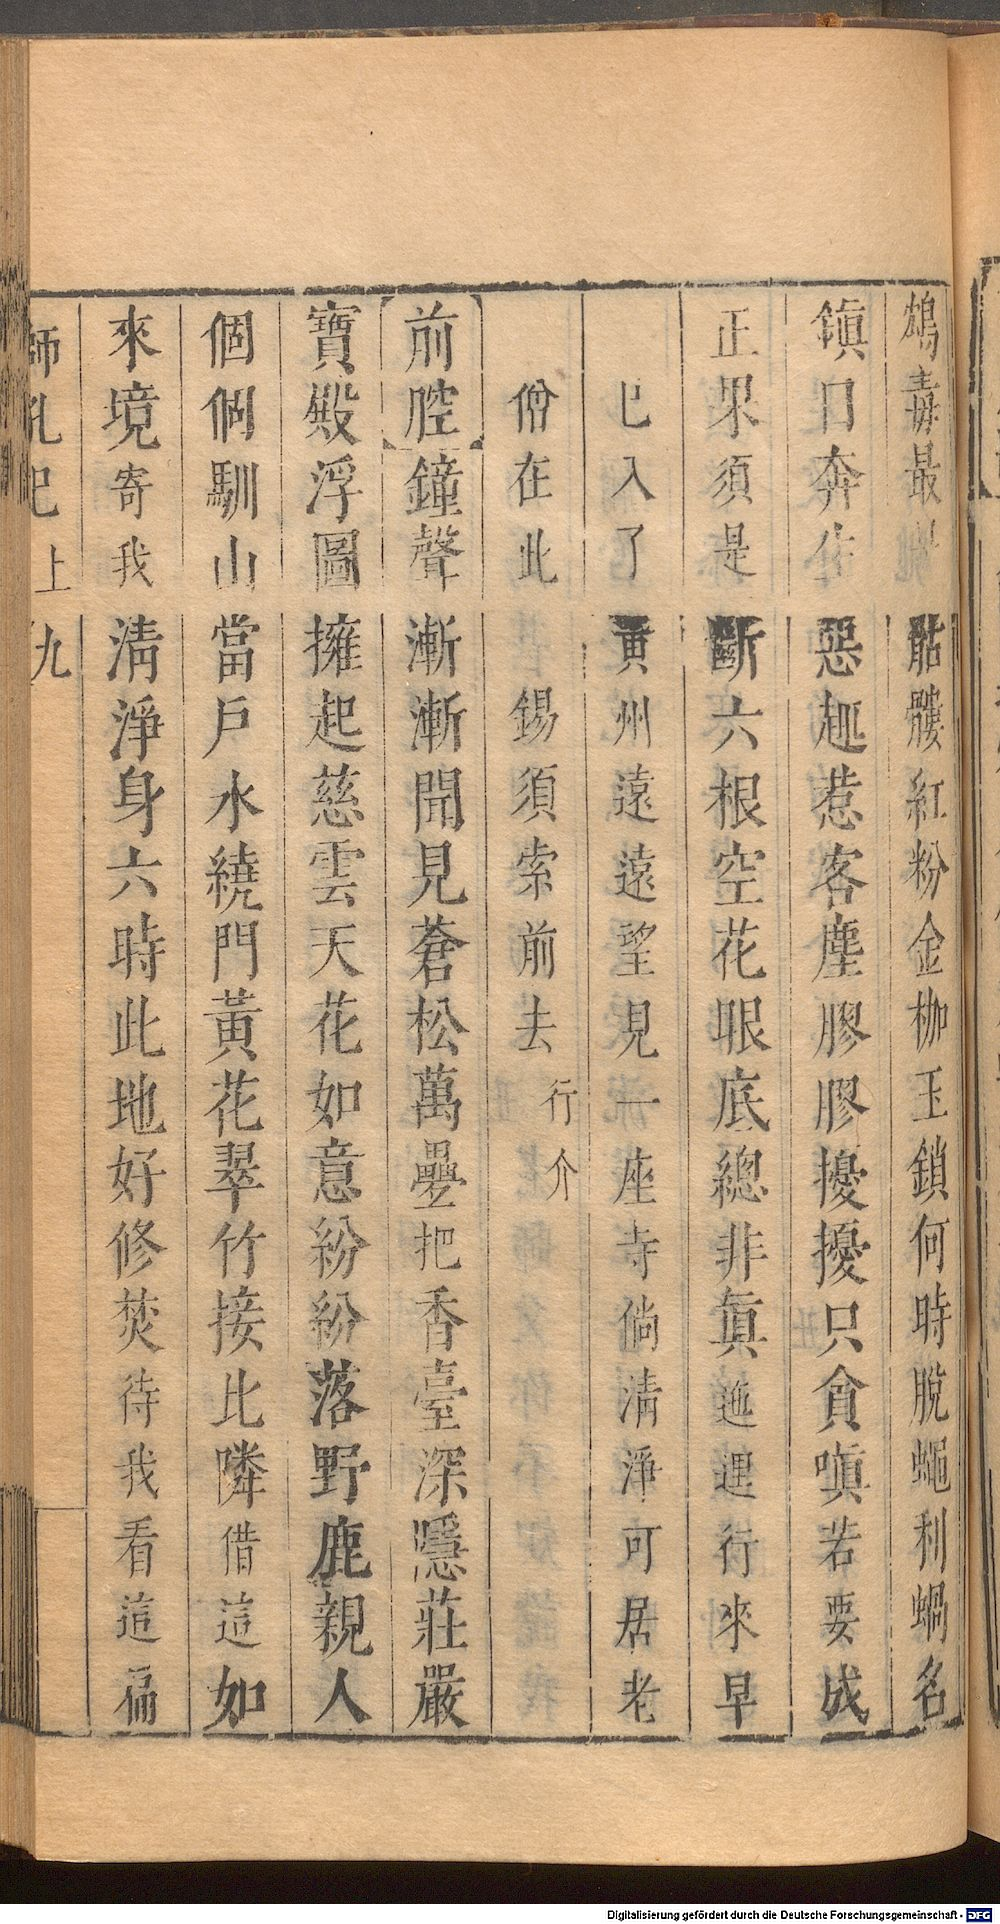 鴆毒最骷髏紅粉金枷玉鎖何時脫蠅利蝸名
鎮日奔生惡趣惹客塵膠膠擾擾只貪嗔若要成
正果須是斷六根空花眼底總非眞迤逦行來早
已入了黃州遠遠望見一座寺倘淸淨可居老
僧在此錫須索前去行介
前腔鐘聲漸漸聞見蒼松萬疊把香臺深隱莊嚴
寶殿浮圖擁起慈雲天花如意紛紛落野鹿親人
個個馴山當戶水繞門黃花翠竹接比隣借這如
來境寄我淸淨身六時此地好修焚待我看這扁
師乳巴上 九
Digitalisierung gefördert durch die Deutsche Forschungsgemeinschaft - DFG